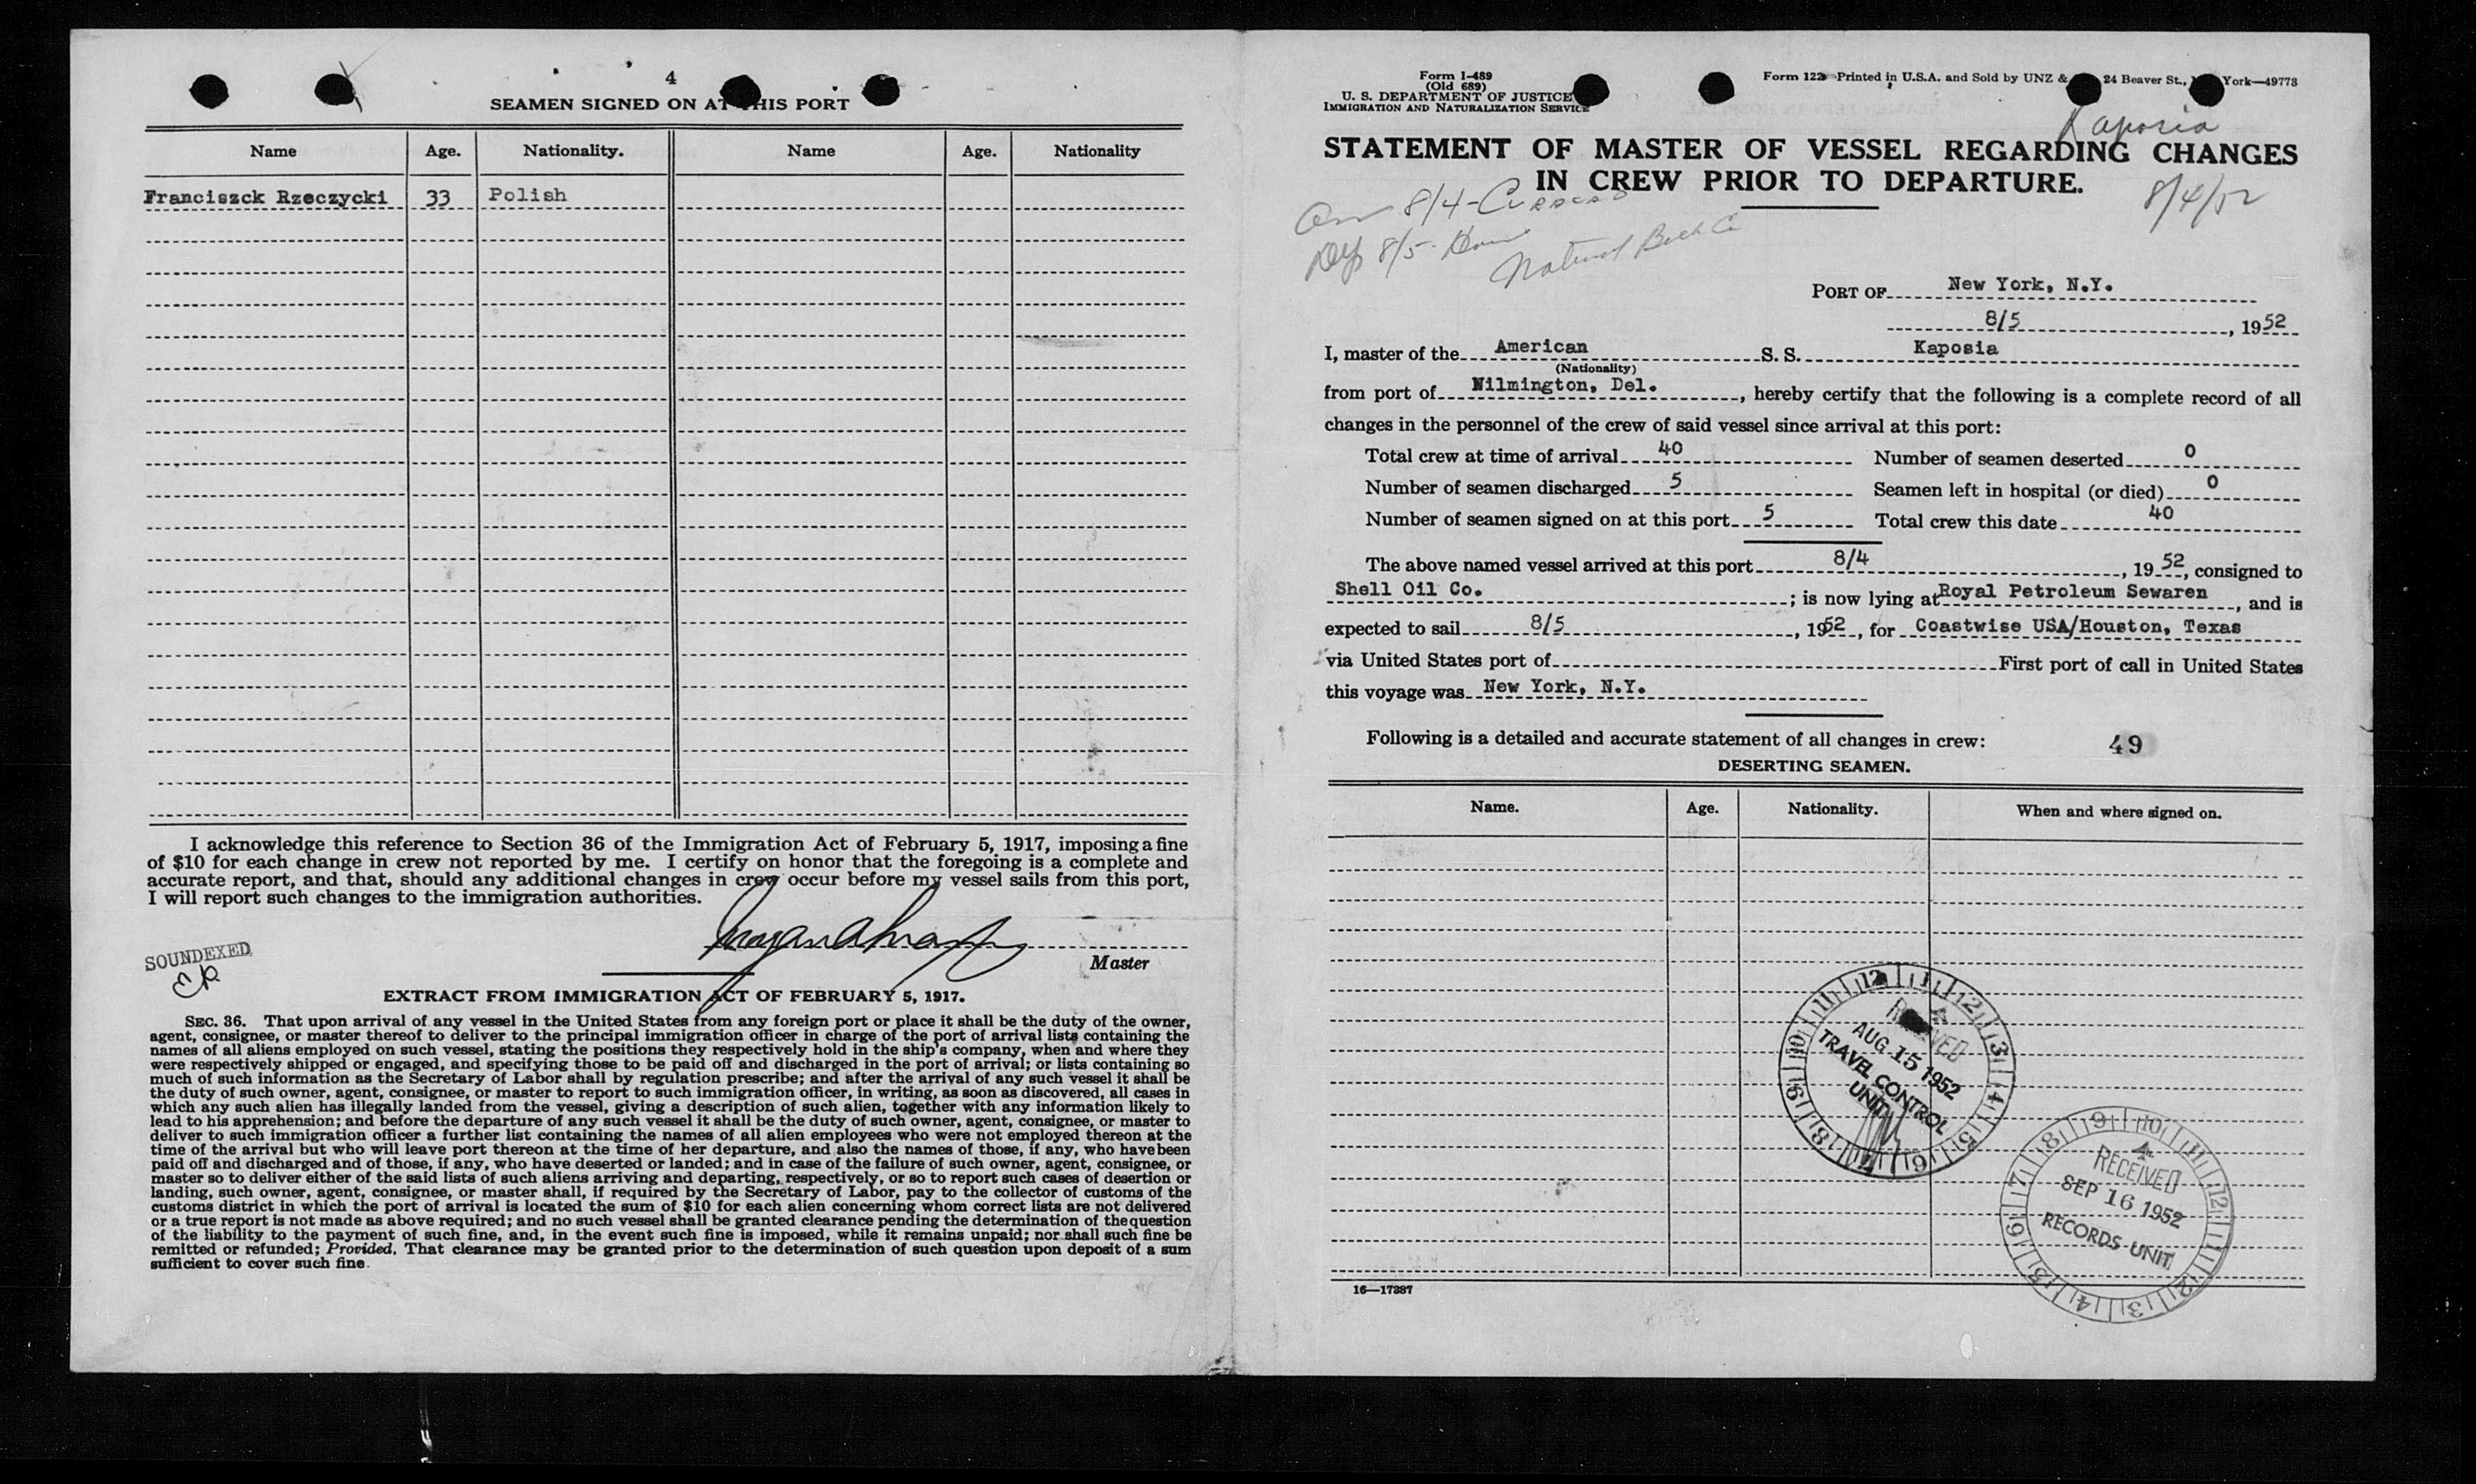 4
SEAMEN SIGNED ON AT THIS PORT
Name Age. Nationality. Name Age. Nationality
Franciszck Rzeczycki 33 Polish
I acknowledge this reference to Section 36 of the Immigration Act of February 5, 1917, imposing a fine
of $10 for each change in crew not reported by me. I certify on honor that the foregoing is a complete and
accurate report, and that, should any additional changes in crew occur before my vessel sails from this port,
I will report such changes to the immigration authorities.
SOUNDEXED
Master
EXTRACT FROM IMMIGRATION ACT OF FEBRUARY 5, 1917.
SEC. 36. That upon arrival of any vessel in the United States from any foreign port or place it shall be the duty of the owner,
agent, consignee, or master thereof to deliver to the principal immigration officer in charge of the port of arrival lists containing the
names of all aliens employed on such vessel, stating the positions they respectively hold in the ship's company, when and where they
were respectively shipped or engaged, and specifying those to be paid off and discharged in the port of arrival; or lists containing so
much of such information as the Secretary of Labor shall by regulation prescribe; and after the arrival of any such vessel it shall be
the duty of such owner, agent, consignee, or master to report to such immigration officer, in writing, as soon as discovered, all cases in
which any such alien has illegally landed from the vessel, giving a description of such alien, together with any information likely to
lead to his apprehension; and before the departure of any such vessel it shall be the duty of such owner, agent, consignee, or master to
deliver to such immigration officer a further list containing the names of all alien employees who were not employed thereon at the
time of the arrival but who will leave port thereon at the time of her departure, and also the names of those, if any, who have been
paid off and discharged and of those, if any, who have deserted or landed; and in case of the failure of such owner, agent, consignee, or
master so to deliver either of the said lists of such aliens arriving and departing, respectively, or so to report such cases of desertion or
landing, such owner, agent, consignee, or master shall, if required by the Secretary of Labor, pay to the collector of customs of the
customs district in which the port of arrival is located the sum of $10 for each alien concerning whom correct lists are not delivered
or a true report is not made as above required; and no such vessel shall be granted clearance pending the determination of the question
of the liability to the payment of such fine, and, in the event such fine is imposed, while it remains unpaid; nor shall such fine be
remitted or refunded; Provided, That clearance may be granted prior to the determination of such question upon deposit of a sum
sufficient to cover such fine.
Form I-489
(Old 689)
U. S. DEPARTMENT OF JUSTICE
IMMIGRATION AND NATURALIZATION SERVICE
Form 122 Printed in U.S.A. and Sold by UNZ & 24 Beaver St., York—49773
Kaposia
STATEMENT OF MASTER OF VESSEL REGARDING CHANGES
IN CREW PRIOR TO DEPARTURE.
8/4/52
8/4 - Curacao
Dep 8/5 -
PORT OF New York, N.Y.
8/5, 1952
I, master of the American S. S. Kaposia
(Nationality)
from port of Wilmington, Del., hereby certify that the following is a complete record of all
changes in the personnel of the crew of said vessel since arrival at this port:
Total crew at time of arrival 40 Number of seamen deserted 0
Number of seamen discharged 5 Seamen left in hospital (or died) 0
Number of seamen signed on at this port 5 Total crew this date 40
The above named vessel arrived at this port 8/4, 1952, consigned to
Shell Oil Co.; is now lying at Royal Petroleum Sewaren, and is
expected to sail 8/5, 1952, for Coastwise USA/Houston, Texas
via United States port of First port of call in United States
this voyage was New York, N.Y.
Following is a detailed and accurate statement of all changes in crew: 49
DESERTING SEAMEN.
Name. Age. Nationality. When and where signed on.
RECEIVED
AUG 15 1952
TRAVEL CONTROL
UNIT
RECEIVED
SEP 16 1952
RECORDS UNIT
16—17387